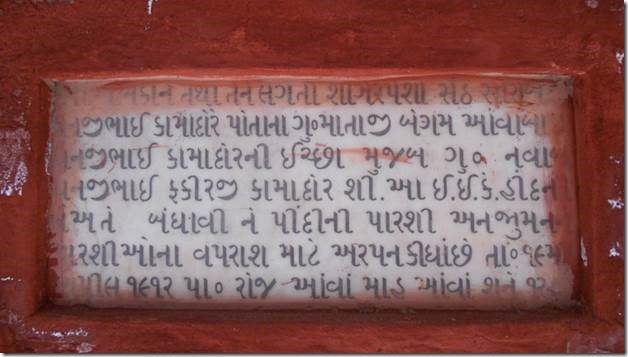 આ મકાન તથા તેને લગતી શાગરપેશા શેઠ સોરાબ
નજીભાઈ કામાદીંન પોતાના ગુ૰માતાજી બેગમ આવાબા
નજીભાઈ કામાદીનની ઈચ્છા મુજબ ગુ૰ નવા
નજીભાઈ ફકીરજી કામાદીન શી.આ ઈ.ઈ.કે.હીંદની
અતે બંધાવી ને પીંદીની પારશી અનજુમન
પારશીઓના વપરાશ માટે અરપન કીધાંછે તાં૰૧૯મી
પરીલ ૧૯૧૨ પા૰ રોજ આંવાં માહ આંવાં શને ૧૨